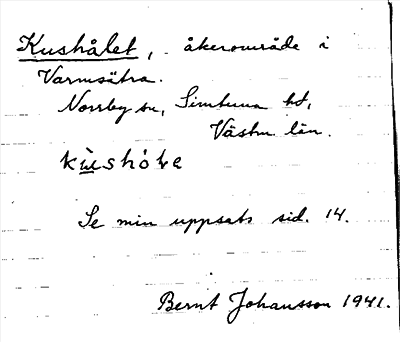 Kushålet, åkerområde i
Varmsätra.
Norrby sn, Simtuna hd,
Västm. län.
kùshó̀ɫe
Se min uppsats sid. 14.
Bernt Johansson 1941.